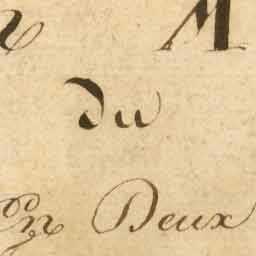 M
du
En Deux